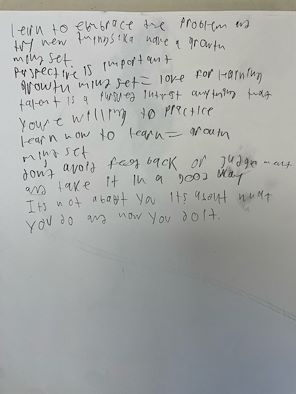 learn to embrace the problem and
try new things aka have a growth
mind set.
perspective is important
growth mind set = love for learning
talent is a pursued intrest anything that
you're willing to practice
learn how to learn = growth
mind set
dont avoid feedback or judgement
and take it in a good way
Its not about you its about what
you do and how you do it.